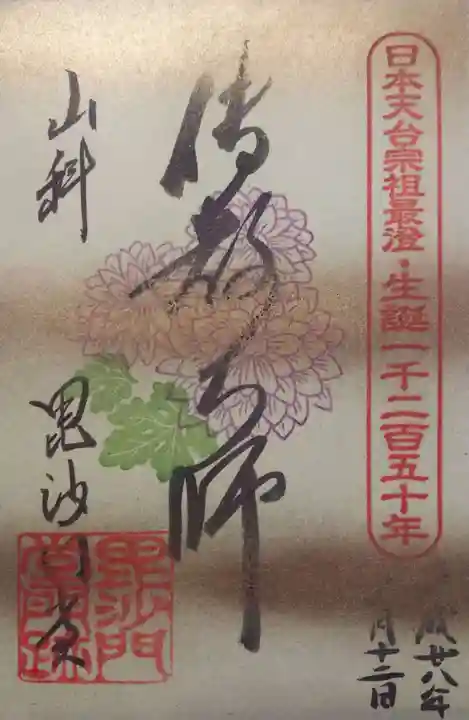 日本天台宗祖最澄・生誕一千二百五十年
成廿八年
月十二日
傳教大師
山科
毘沙門堂
毘沙門
堂